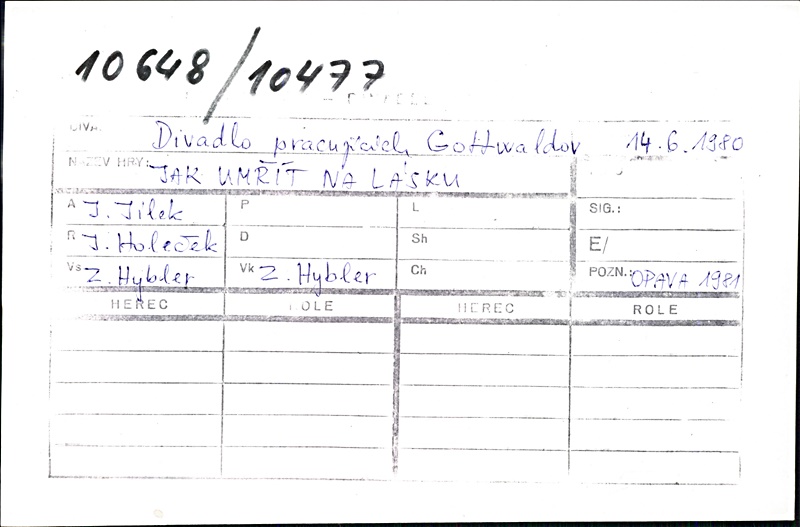 10648/10477
DIVA: Divadlo pracujících Gottwaldov 14.6.1980
NÁZEV HRY: JAK UMŘÍT NA LÁSKU
A J. Jílek P L SIG.:
R J. Holeček D Sh E/
Vs Z. Hybler Vk Z. Hybler Ch POZN.: OPAVA 1981
HEREC ROLE HEREC ROLE